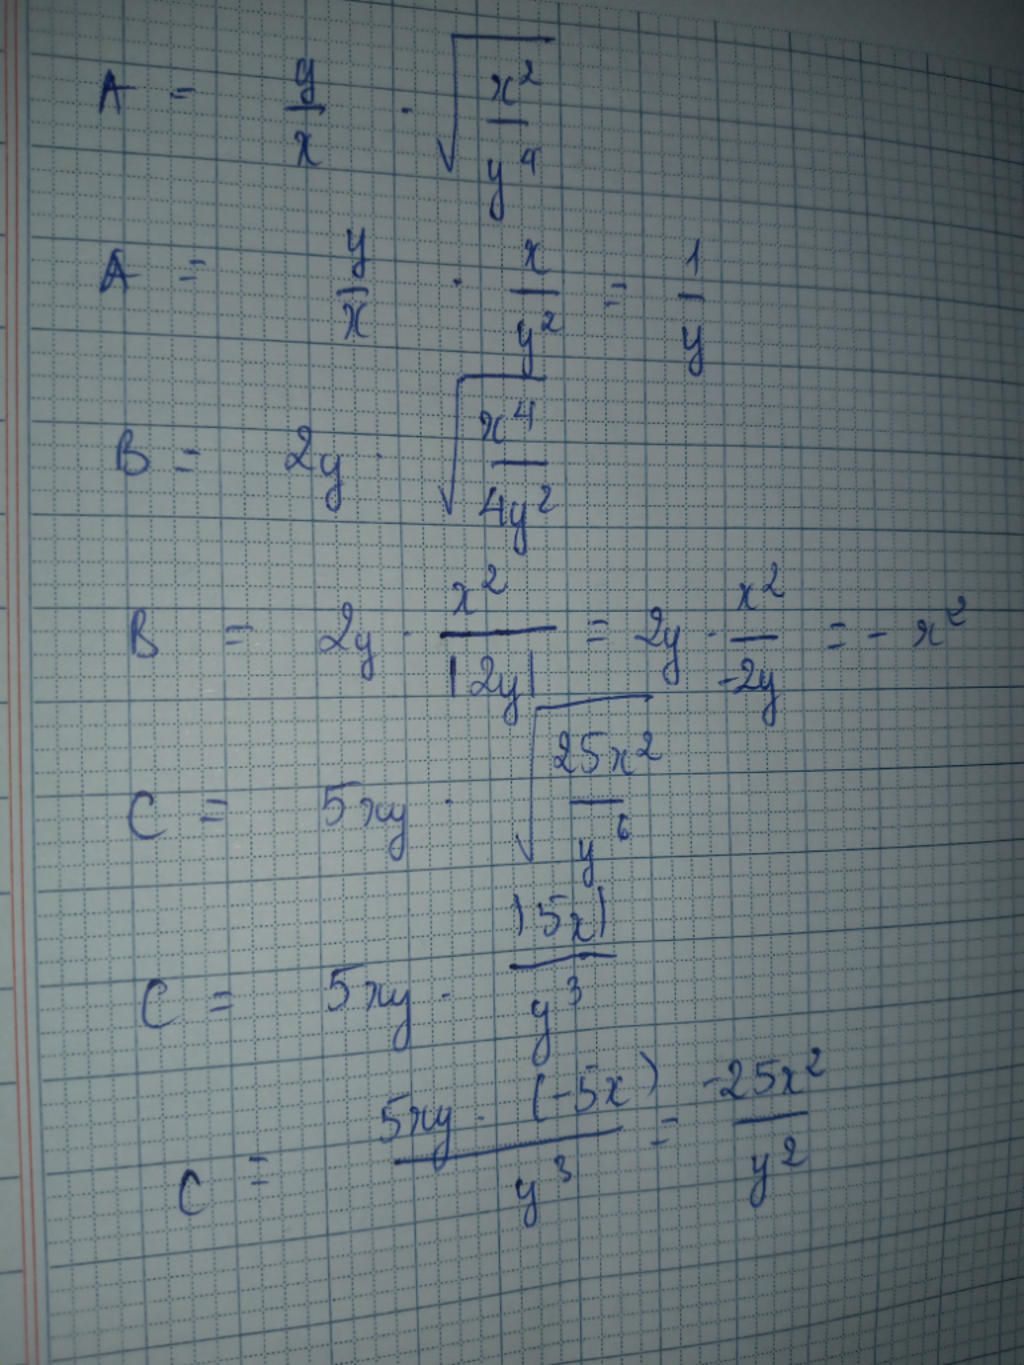 A = y/x · √(x²/y⁴)
A = y/x · x/y² = 1/y
B = 2y · √(x⁴/4y²)
B = 2y · x²/|2y| = 2y · x²/-2y = - x²
C = 5xy · √(25x²/y⁶)
C = 5xy · |5x|/y³
C = 5xy · (-5x)/y³ = -25x²/y²